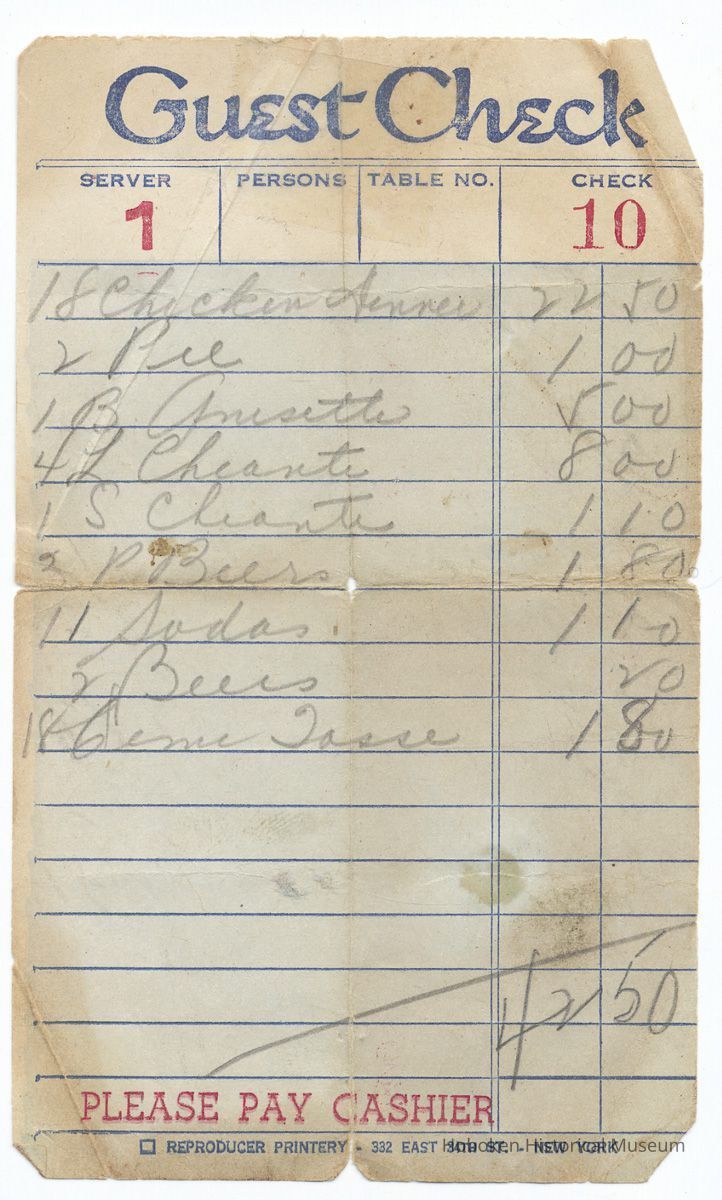 Guest Check
SERVER PERSONS TABLE NO. CHECK
1 10
18 Chicken Dinner 22 50
2 Pie 1 00
1 B. Anisette 5 00
4 L Cheante 8 00
1 S Cheante 1 10
P Beers 1 80
11 Sodas 1 10
2 Beers 20
18 Demi Tasse 1 80
42 50
PLEASE PAY CASHIER
REPRODUCER PRINTERY - 332 EAST ST. - NEW YORK
Hoboken Historical Museum